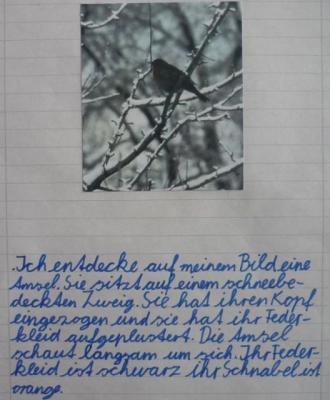 .Ich entdecke auf meinem Bild eine
Amsel. Sie sitzt auf einem schneebe-
deckten Zweig. Sie hat ihren Kopf
eingezogen und sie hat ihr Feder-
kleid aufgeplustert. Die Amsel
schaut langsam um sich. Ihr Feder-
kleid ist schwarz ihr Schnabel ist
orange.